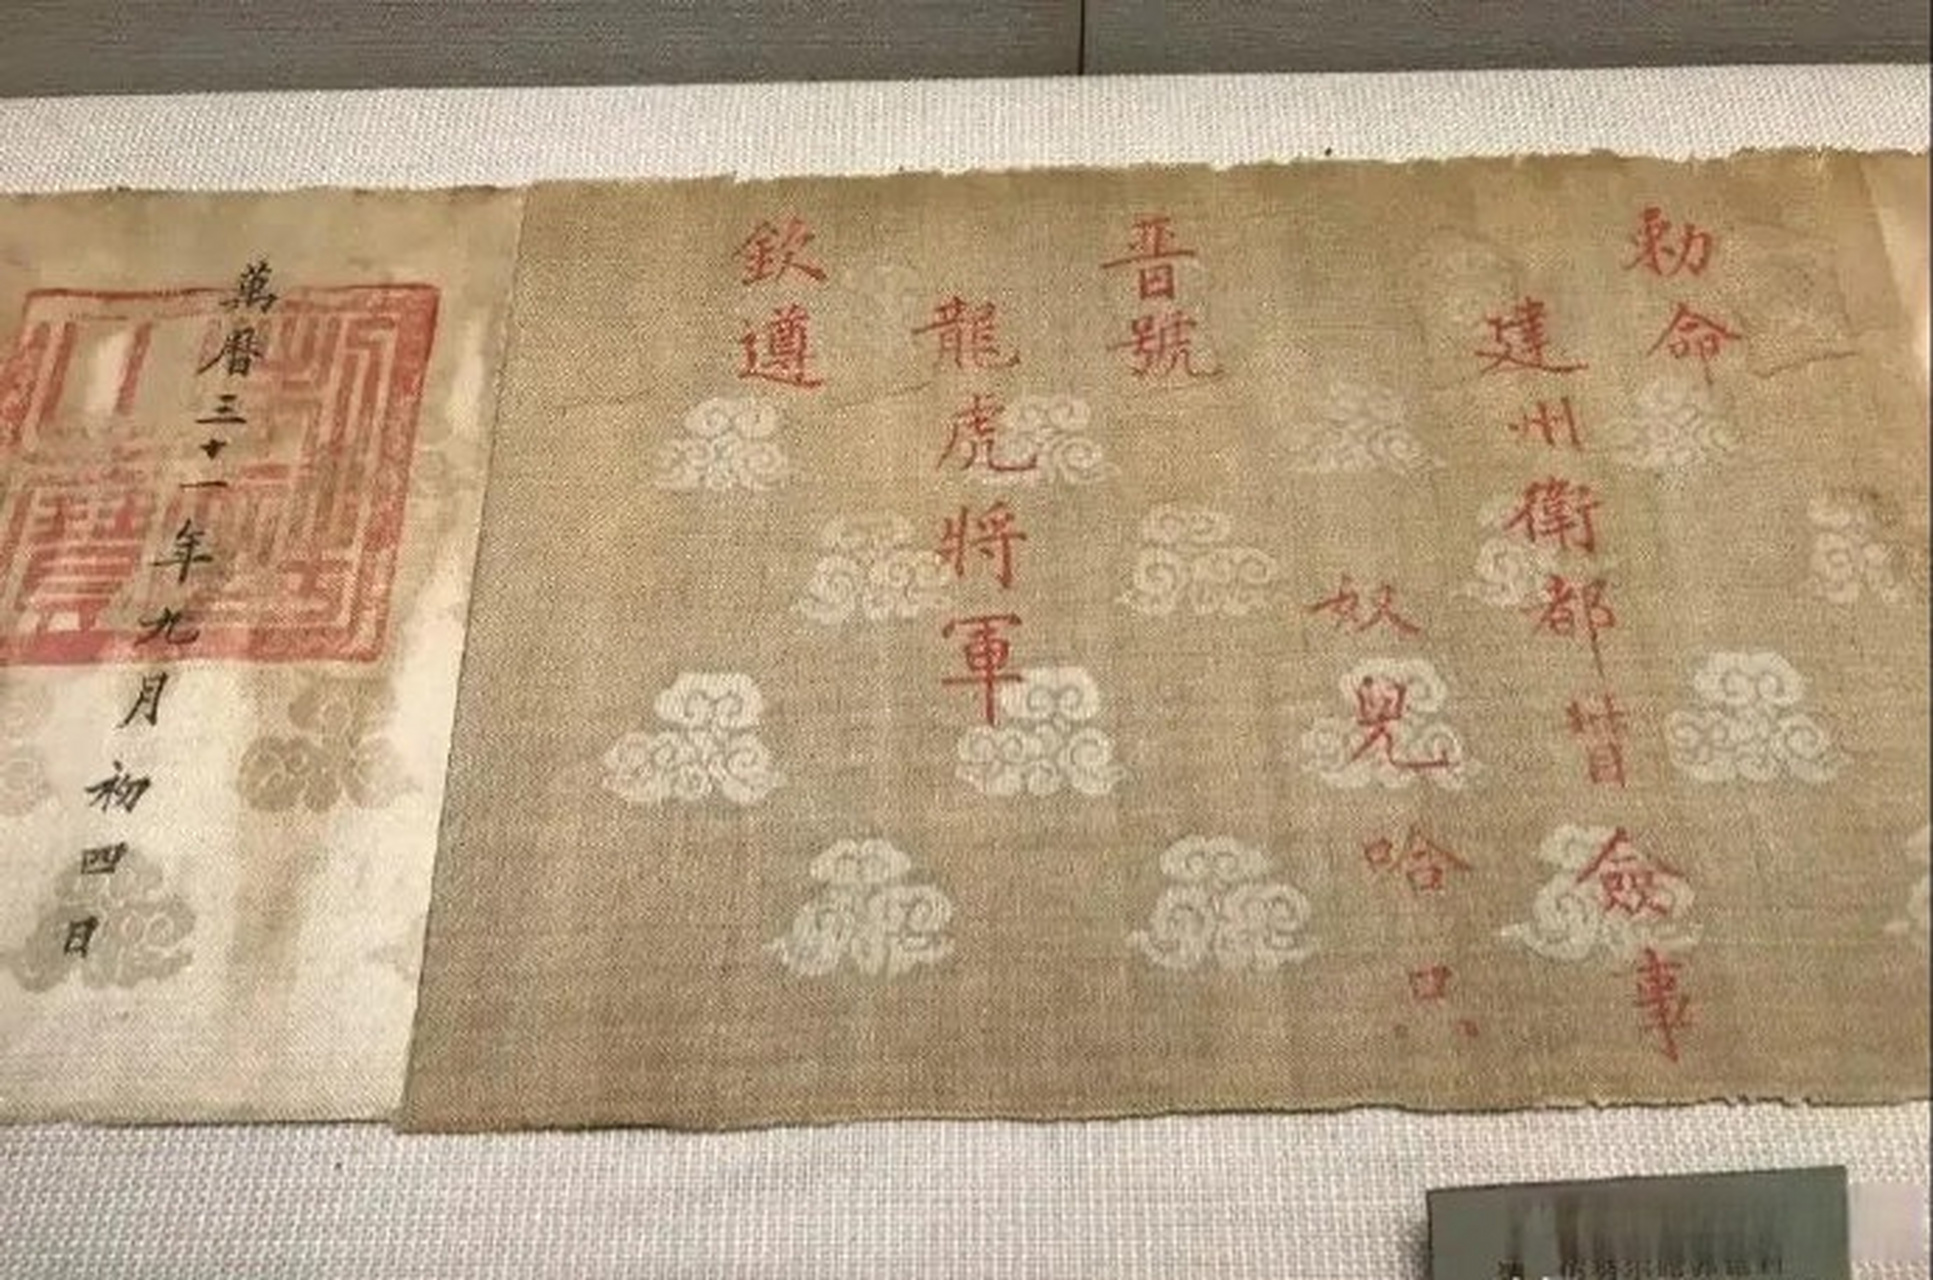 勅命
建州衛都督僉事
奴兒哈只
晋號
龍虎將軍
欽遵
萬曆三十一年九月初四日